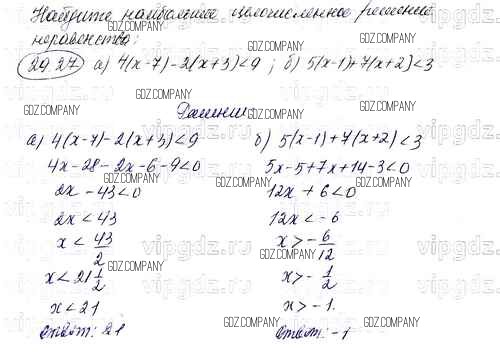 Найдите наибольшее целочисленное решение
неравенства:
29.27 а) 4(x-7)-2(x+3)<9 ; б) 5(x-1)+7(x+2)<3
Решение:
а) 4(x-7)-2(x+3)<9
4x-28-2x-6-9<0
2x-43<0
2x<43
x<43/2
x<21 1/2
x<21
Ответ: 21
б) 5(x-1)+7(x+2)<3
5x-5+7x+14-3<0
12x+6<0
12x<-6
x>-6/12
x>-1/2
x>-1.
Ответ: -1
vipgdz.ru
GDZ.COMPANY